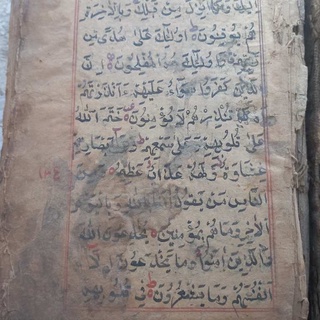 اِلَیْكَ وَمَاۤ اُنْزِلَ مِنْ قَبْلِكَ وَبِالْاٰخِرَةِ
هُمْ یُوْقِنُوْنَ اُولٰٓئِكَ عَلٰی هُدًی مِّنْ
رَّبِّهِمْ وَاُولٰٓئِكَ هُمُ الْمُفْلِحُوْنَ اِنَّ
الَّذِیْنَ كَفَرُوْا سَوَآءٌ عَلَیْهِمْ ءَاَنْذَرْتَهُمْ
اَمْ لَمْ تُنْذِرْهُمْ لَا یُؤْمِنُوْنَ خَتَمَ اللّٰهُ
عَلٰی قُلُوْبِهِمْ وَعَلٰی سَمْعِهِمْ وَعَلٰۤی اَبْصَارِهِمْ
غِشَاوَةٌ وَّلَهُمْ عَذَابٌ عَظِیْمٌ وَمِنَ
النَّاسِ مَنْ یَّقُوْلُ اٰمَنَّا بِاللّٰهِ وَبِالْیَوْمِ
الْاٰخِرِ وَمَا هُمْ بِمُؤْمِنِیْنَ یُخٰدِعُوْنَ اللّٰهَ
وَالَّذِیْنَ اٰمَنُوْا وَمَا یَخْدَعُوْنَ اِلَّاۤ
اَنْفُسَهُمْ وَمَا یَشْعُرُوْنَ فِیْ قُلُوْبِهِمْ